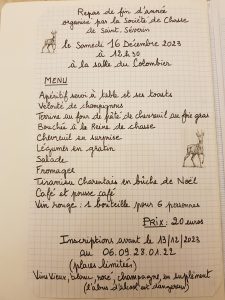 Repas de fin d'année
organisé par la Société de Chasse
de Saint Séverin
le Samedi 16 Décembre 2023
à 12h30
à la salle du Colombier
MENU
Apéritif servi à table et ses toasts
Velouté de champignons
Terrine au four de pâté de chevreuil au foie gras
Bouchée à la Reine de chasse
Chevreuil en surmise
Légumes en gratin
Salade
Fromages
Tiramisu Charentais en bûche de Noël
Café et pousse café
Vin rouge : 1 bouteille pour 6 personnes
Prix : 20 euros
Inscriptions avant le 13/12/2023
au 06.09.28.01.22
(places limitées)
Vins vieux, blanc, rosé, champagne, en supplément
(l'abus d'alcool est dangereux)